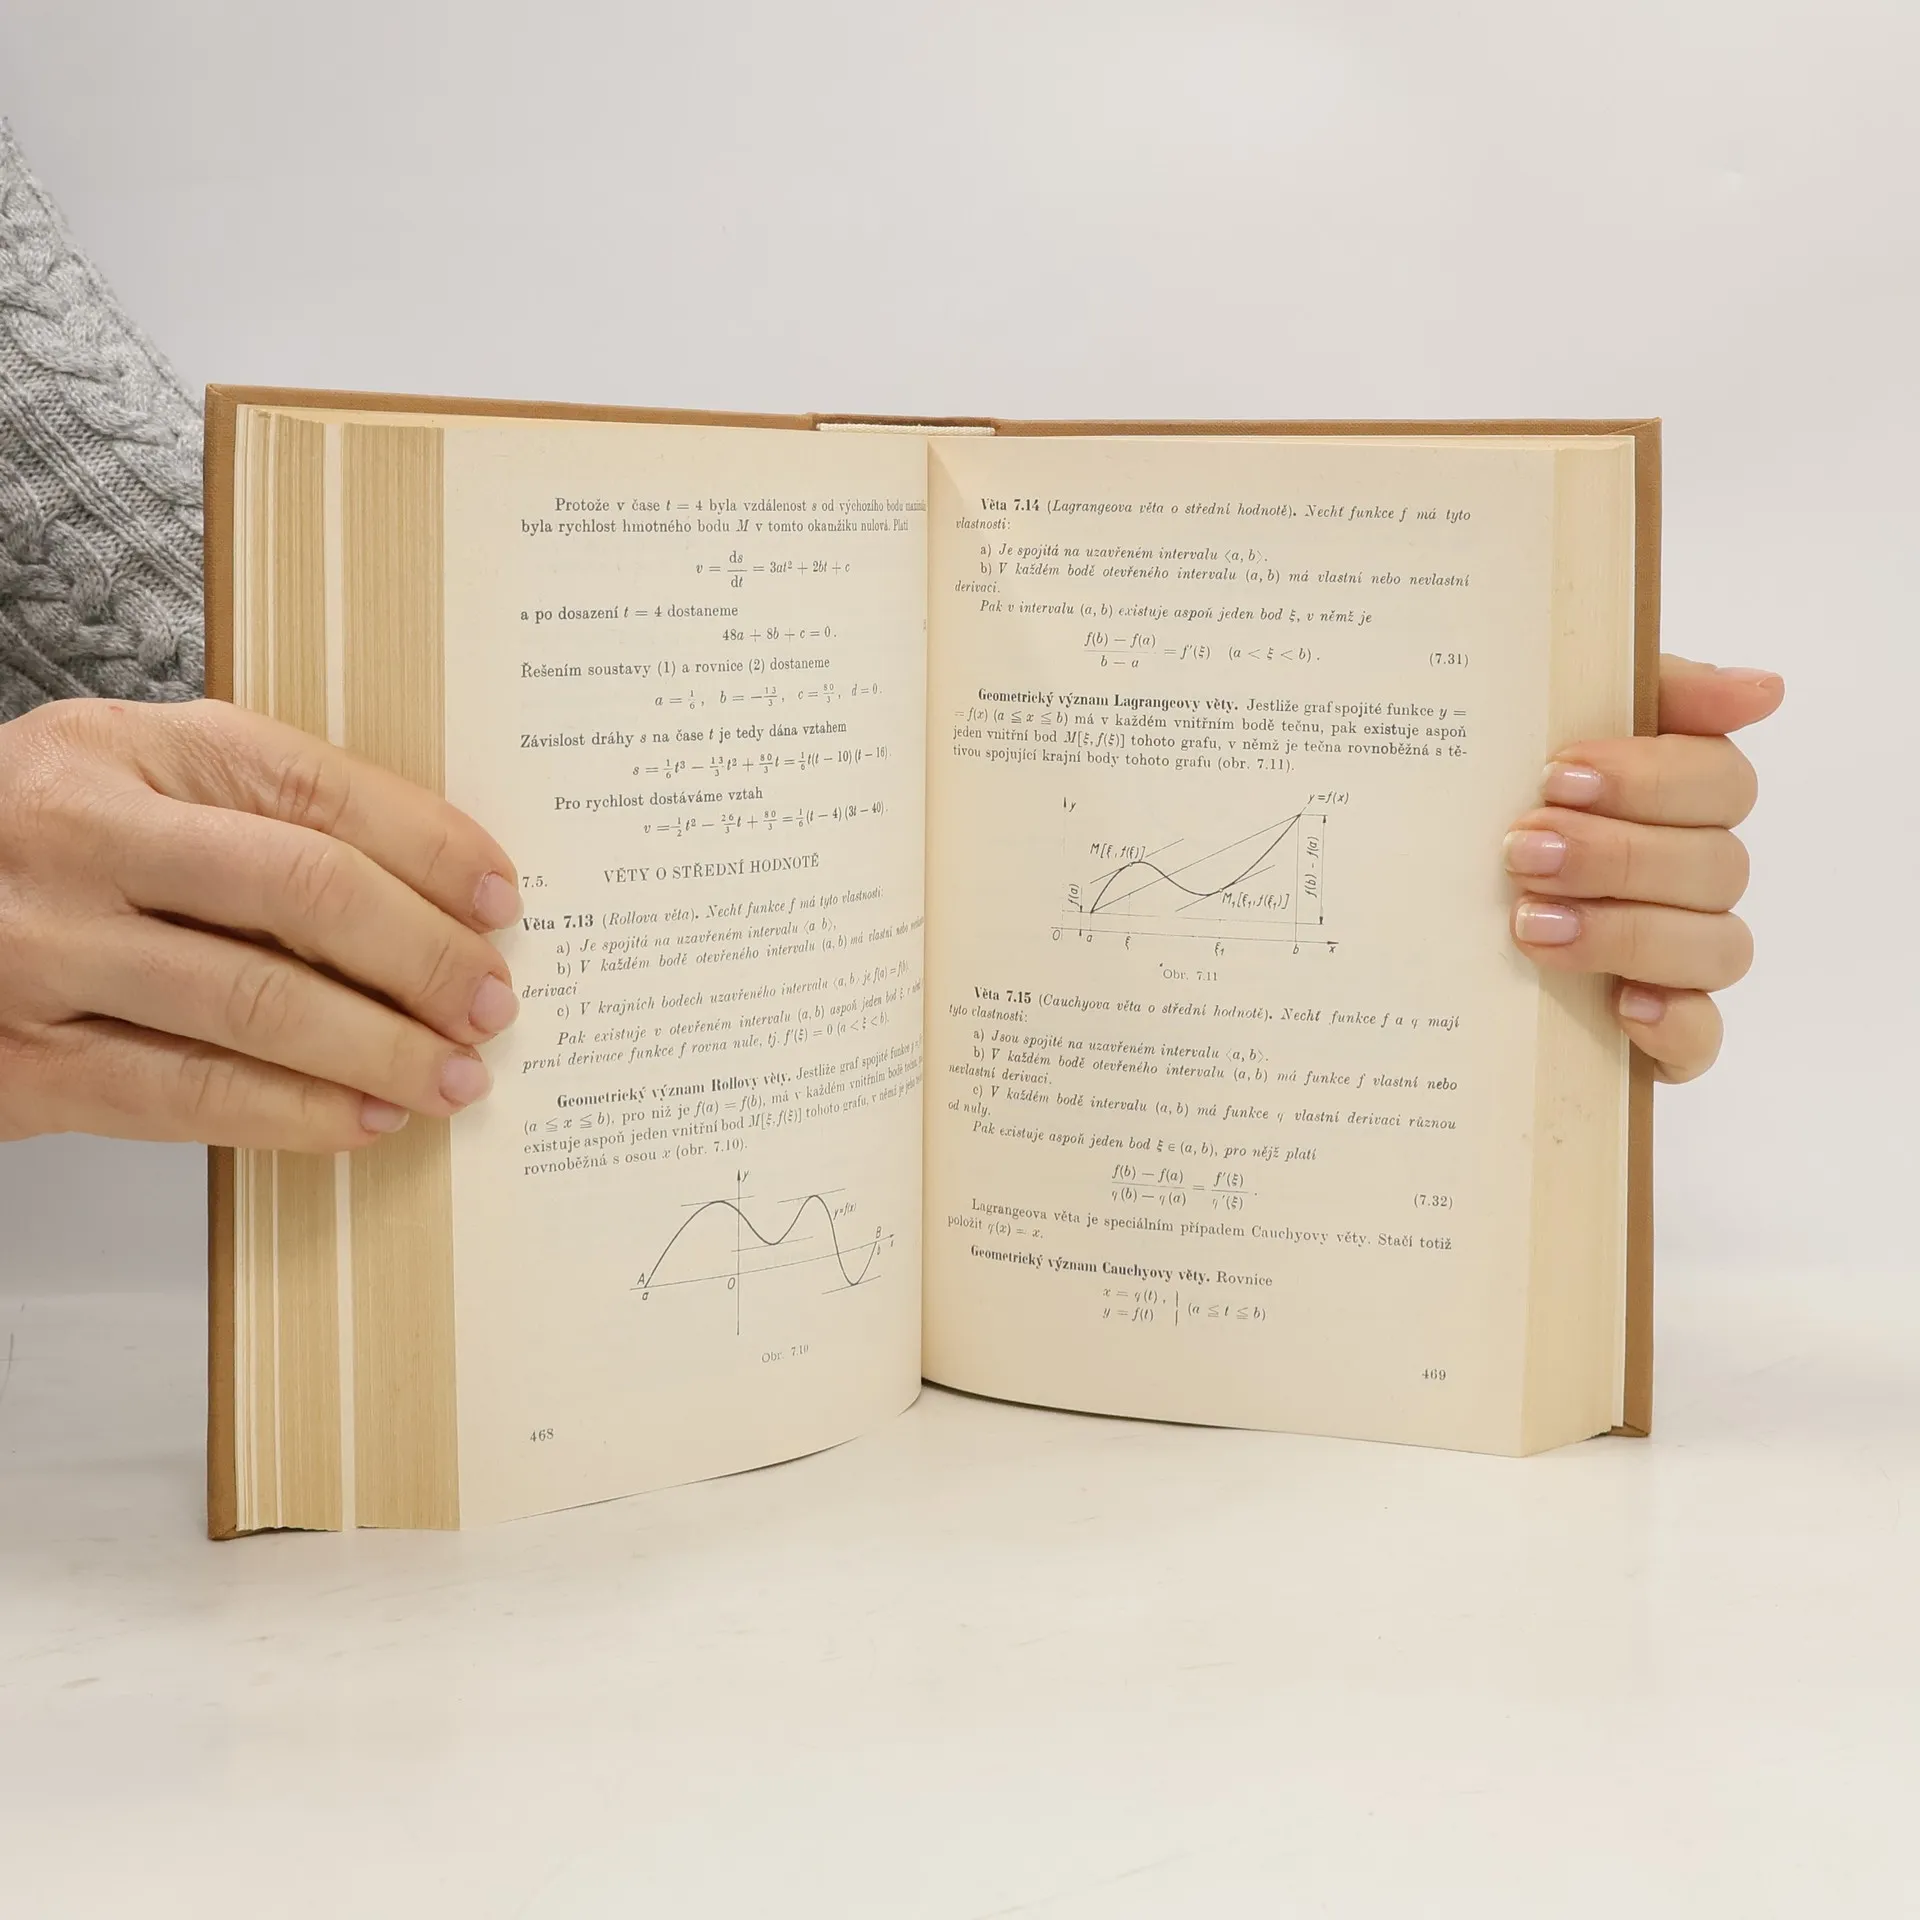 Protože v čase t = 4 byla vzdálenost s od výchozího bodu
byla rychlost hmotného bodu M v tomto okamžiku nulová. Platí
v = ds/dt = 3at² + 2bt + c
a po dosazení t = 4 dostaneme
48a + 8b + c = 0.
Řešením soustavy (1) a rovnice (2) dostaneme
a = 1/6, b = −13/3, c = 80/3, d = 0.
Závislost dráhy s na čase t je tedy dána vztahem
s = 1/6 t³ − 13/3 t² + 80/3 t = 1/6 t(t − 10) (t − 16).
Pro rychlost dostáváme vztah
v = 1/2 t² − 26/3 t + 80/3 = 1/6 (t − 4) (3t − 40).
7.5. VĚTY O STŘEDNÍ HODNOTĚ
Věta 7.13 (Rollova věta). Nechť funkce f má tyto vlastnosti:
a) Je spojitá na uzavřeném intervalu ⟨a b⟩,
b) V každém bodě otevřeného intervalu (a, b) má vlastní nebo
derivaci
c) V krajních bodech uzavřeného intervalu ⟨a, b⟩ je f(a) = f(b).
Pak existuje v otevřeném intervalu (a, b) aspoň jeden bod ξ, v
první derivace funkce f rovna nule, tj. f′(ξ) = 0 (a < ξ < b).
Geometrický význam Rollovy věty. Jestliže graf spojité funkce
(a ≦ x ≦ b), pro niž je f(a) = f(b), má v každém vnitřním bodě tečnu,
existuje aspoň jeden vnitřní bod M[ξ, f(ξ)] tohoto grafu, v němž je
rovnoběžná s osou x (obr. 7.10).
y
y=f(x)
A
B
a
O
b
Obr. 7.10
468
Věta 7.14 (Lagrangeova věta o střední hodnotě). Nechť funkce f má tyto
vlastnosti:
a) Je spojitá na uzavřeném intervalu ⟨a, b⟩.
b) V každém bodě otevřeného intervalu (a, b) má vlastní nebo nevlastní
derivaci.
Pak v intervalu (a, b) existuje aspoň jeden bod ξ, v němž je
f(b) − f(a) / b − a = f′(ξ) (a < ξ < b). (7.31)
Geometrický význam Lagrangeovy věty. Jestliže graf spojité funkce y =
= f(x) (a ≦ x ≦ b) má v každém vnitřním bodě tečnu, pak existuje aspoň
jeden vnitřní bod M[ξ, f(ξ)] tohoto grafu, v němž je tečna rovnoběžná s tě-
tivou spojující krajní body tohoto grafu (obr. 7.11).
y
y=f(x)
M[ξ, f(ξ)]
f(b) - f(a)
f(a)
M₁[ξ₁, f(ξ₁)]
O a ξ ξ₁ b x
Obr. 7.11
Věta 7.15 (Cauchyova věta o střední hodnotě). Nechť funkce f a φ mají
tyto vlastnosti:
a) Jsou spojité na uzavřeném intervalu ⟨a, b⟩.
b) V každém bodě otevřeného intervalu (a, b) má funkce f vlastní nebo
nevlastní derivaci.
c) V každém bodě intervalu (a, b) má funkce φ vlastní derivaci různou
od nuly.
Pak existuje aspoň jeden bod ξ ∈ (a, b), pro nějž platí
f(b) − f(a) / φ(b) − φ(a) = f′(ξ) / φ′(ξ). (7.32)
Lagrangeova věta je speciálním případem Cauchyovy věty. Stačí totiž
položit φ(x) = x.
Geometrický význam Cauchyovy věty. Rovnice
x = φ(t), |
y = f(t) | (a ≦ t ≦ b)
469